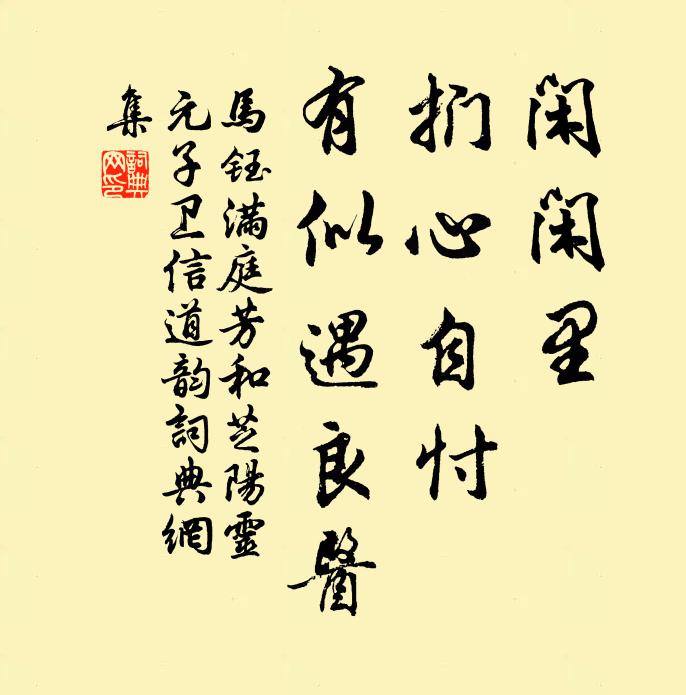 闲闲里
扪心自忖
有似遇良醫
馬鈺满庭芳和芝陽靈
元子卫信道韵詞典網
集
詞典網印